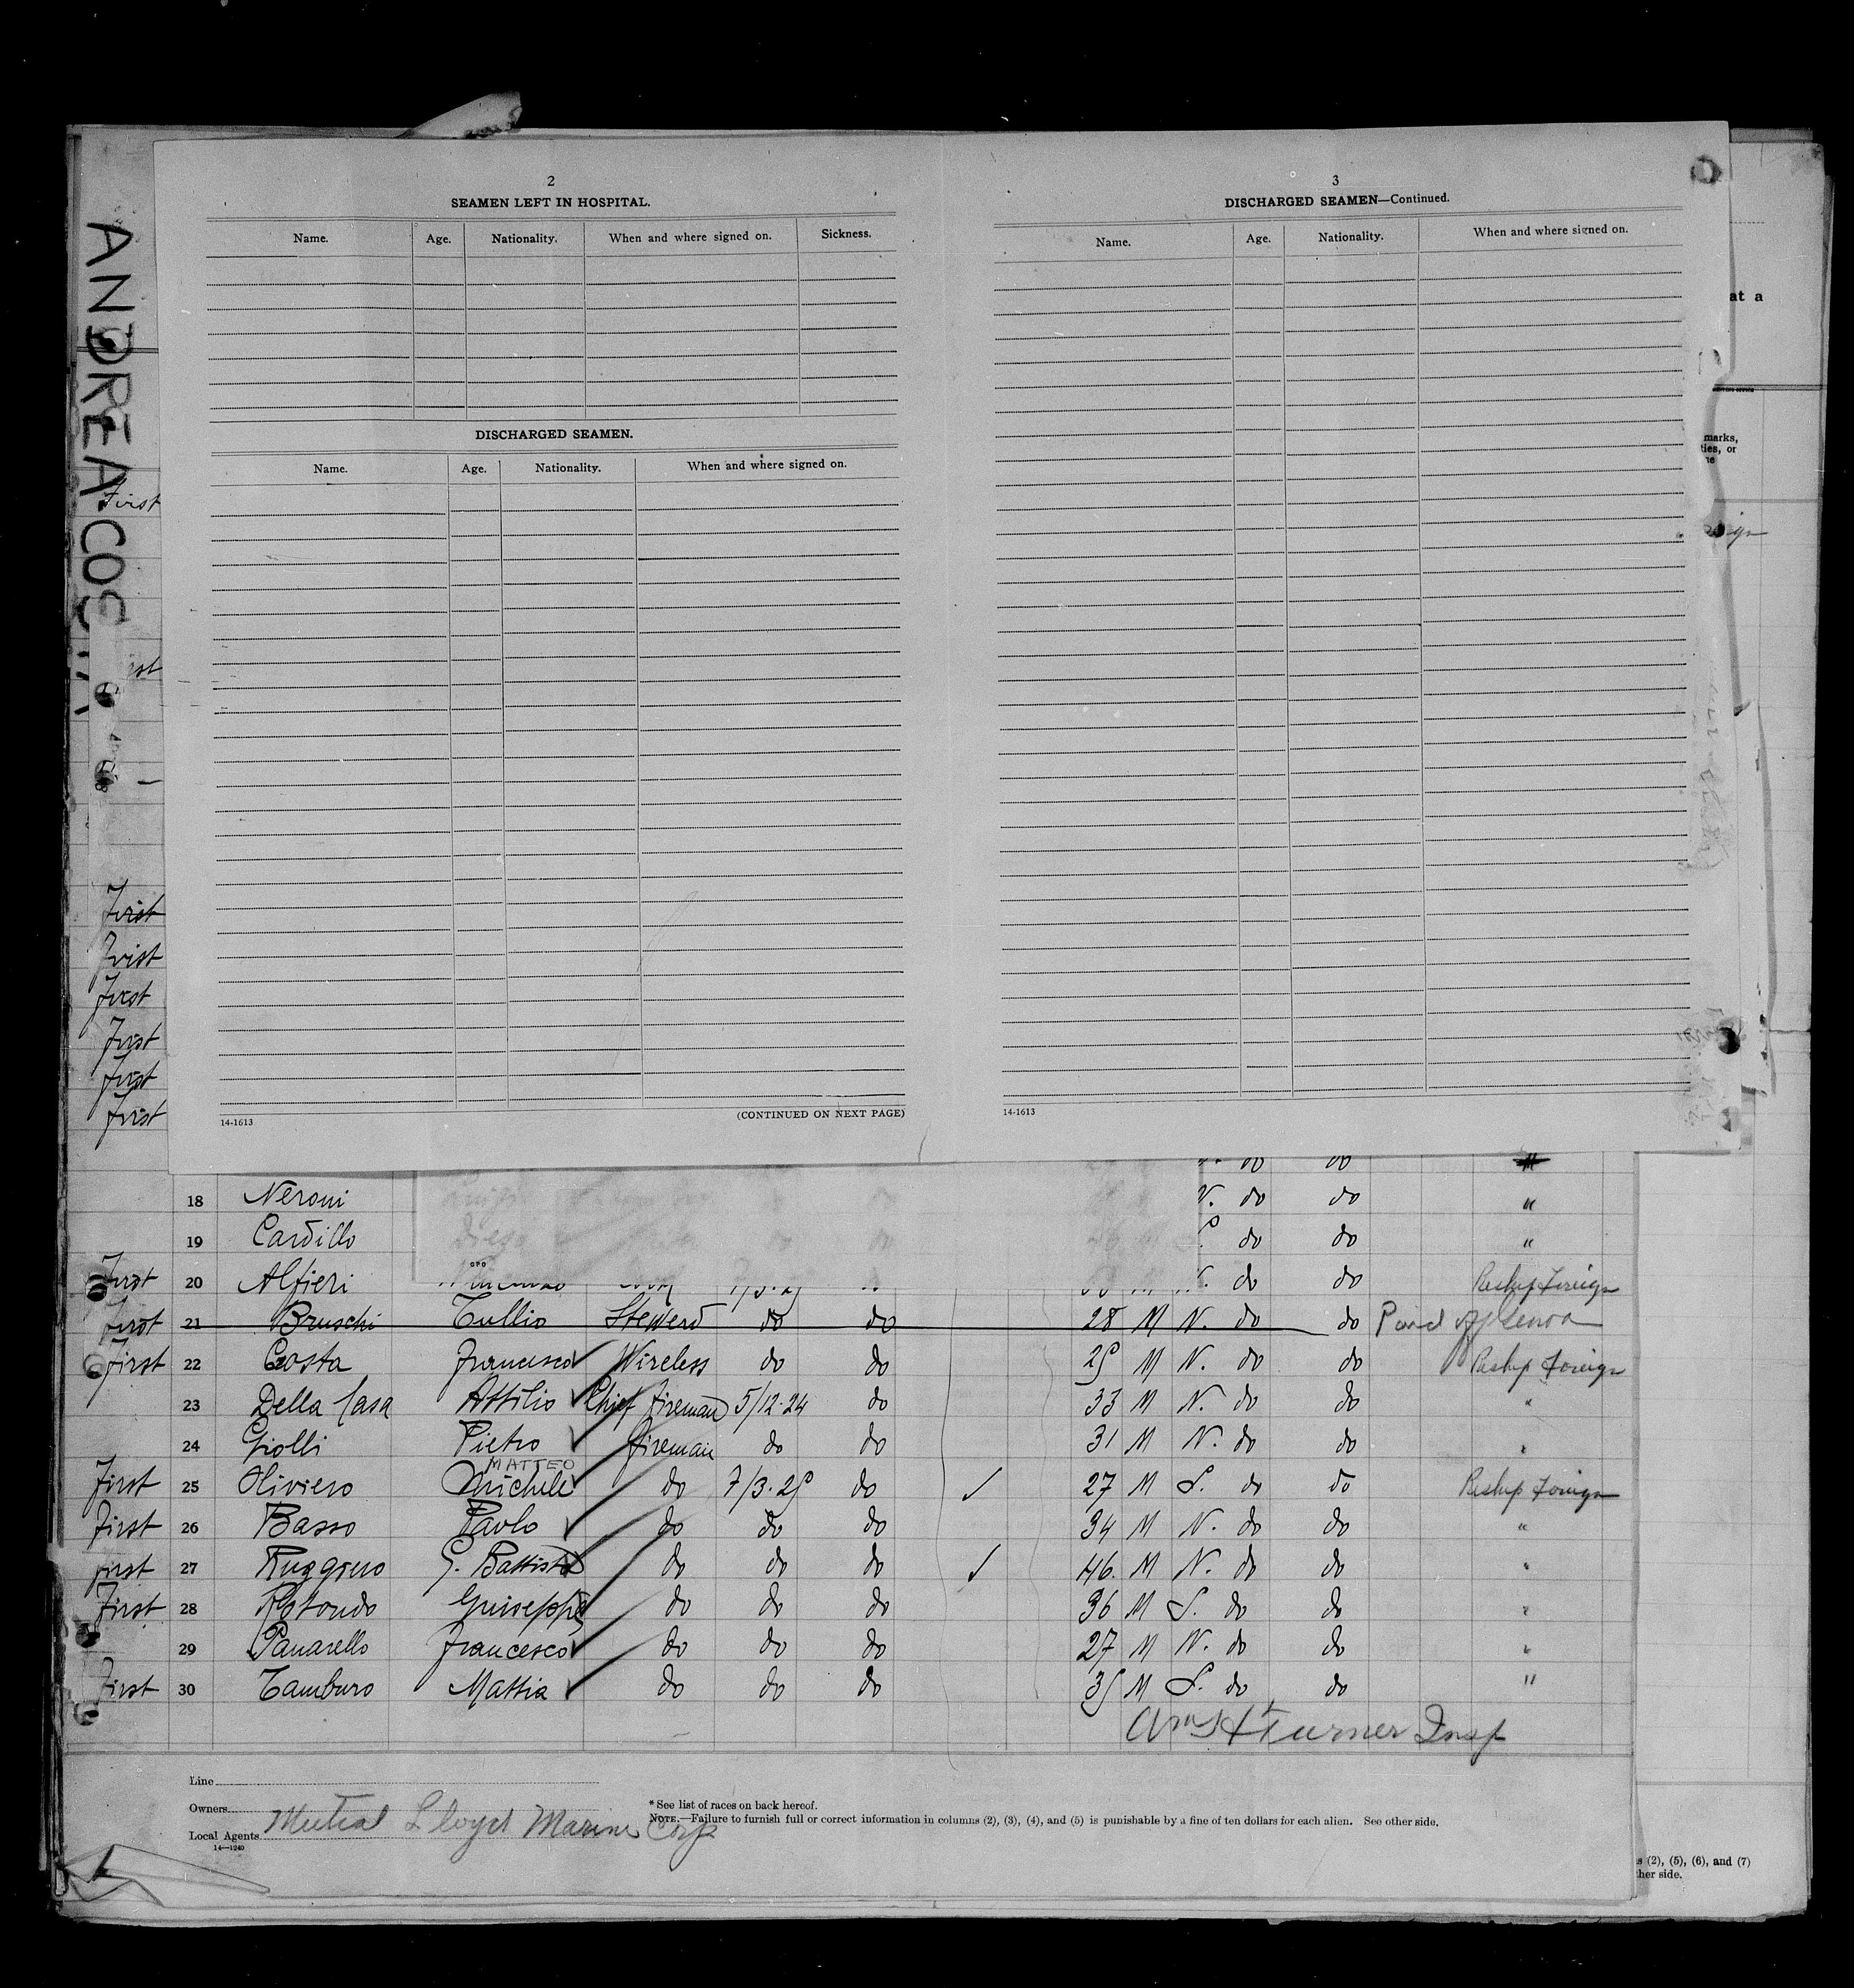 ANDREA COSTA
2
SEAMEN LEFT IN HOSPITAL.
Name. Age. Nationality. When and where signed on. Sickness.
DISCHARGED SEAMEN.
Name. Age. Nationality. When and where signed on.
14-1613 (CONTINUED ON NEXT PAGE)
3
DISCHARGED SEAMEN—Continued.
Name. Age. Nationality. When and where signed on.
14-1613
at a
marks,
ties, or
First
First
First
First
First
First
First
do do "
18 Neroni N. do do "
19 Cardillo do do "
First 20 Alfieri do do Reship Foreign
First 21 Bruschi Tullio Steward do do 28 M N. do do Paid off Genoa
First 22 Costa Francesco Wireless do do 25 M N. do do Reship Foreign
23 Della Casa Attilio Chief Fireman 5/12.24 do 33 M N. do do "
24 Giolli Pietro Fireman do do 31 M N. do do "
MATTEO
First 25 Oliviero Michele do 7/3.25 do ✓ 27 M S. do do Reship Foreign
First 26 Basso Paolo do do do 34 M N. do do "
First 27 Ruggiero G. Battista do do do ✓ 46. M N. do do "
First 28 Rotondo Guiseppe do do do 36 M S. do do "
29 Panarello Francesco do do do 27 M N. do do "
First 30 Tamburo Mattia do do do 35 M S. do do "
Wm H Turner Insp
Line
Owners
Local Agents Mutual Lloyd Marine Corp
14—1240
* See list of races on back hereof.
NOTE.—Failure to furnish full or correct information in columns (2), (3), (4), and (5) is punishable by a fine of ten dollars for each alien. See other side.
(2), (5), (6), and (7)
her side.